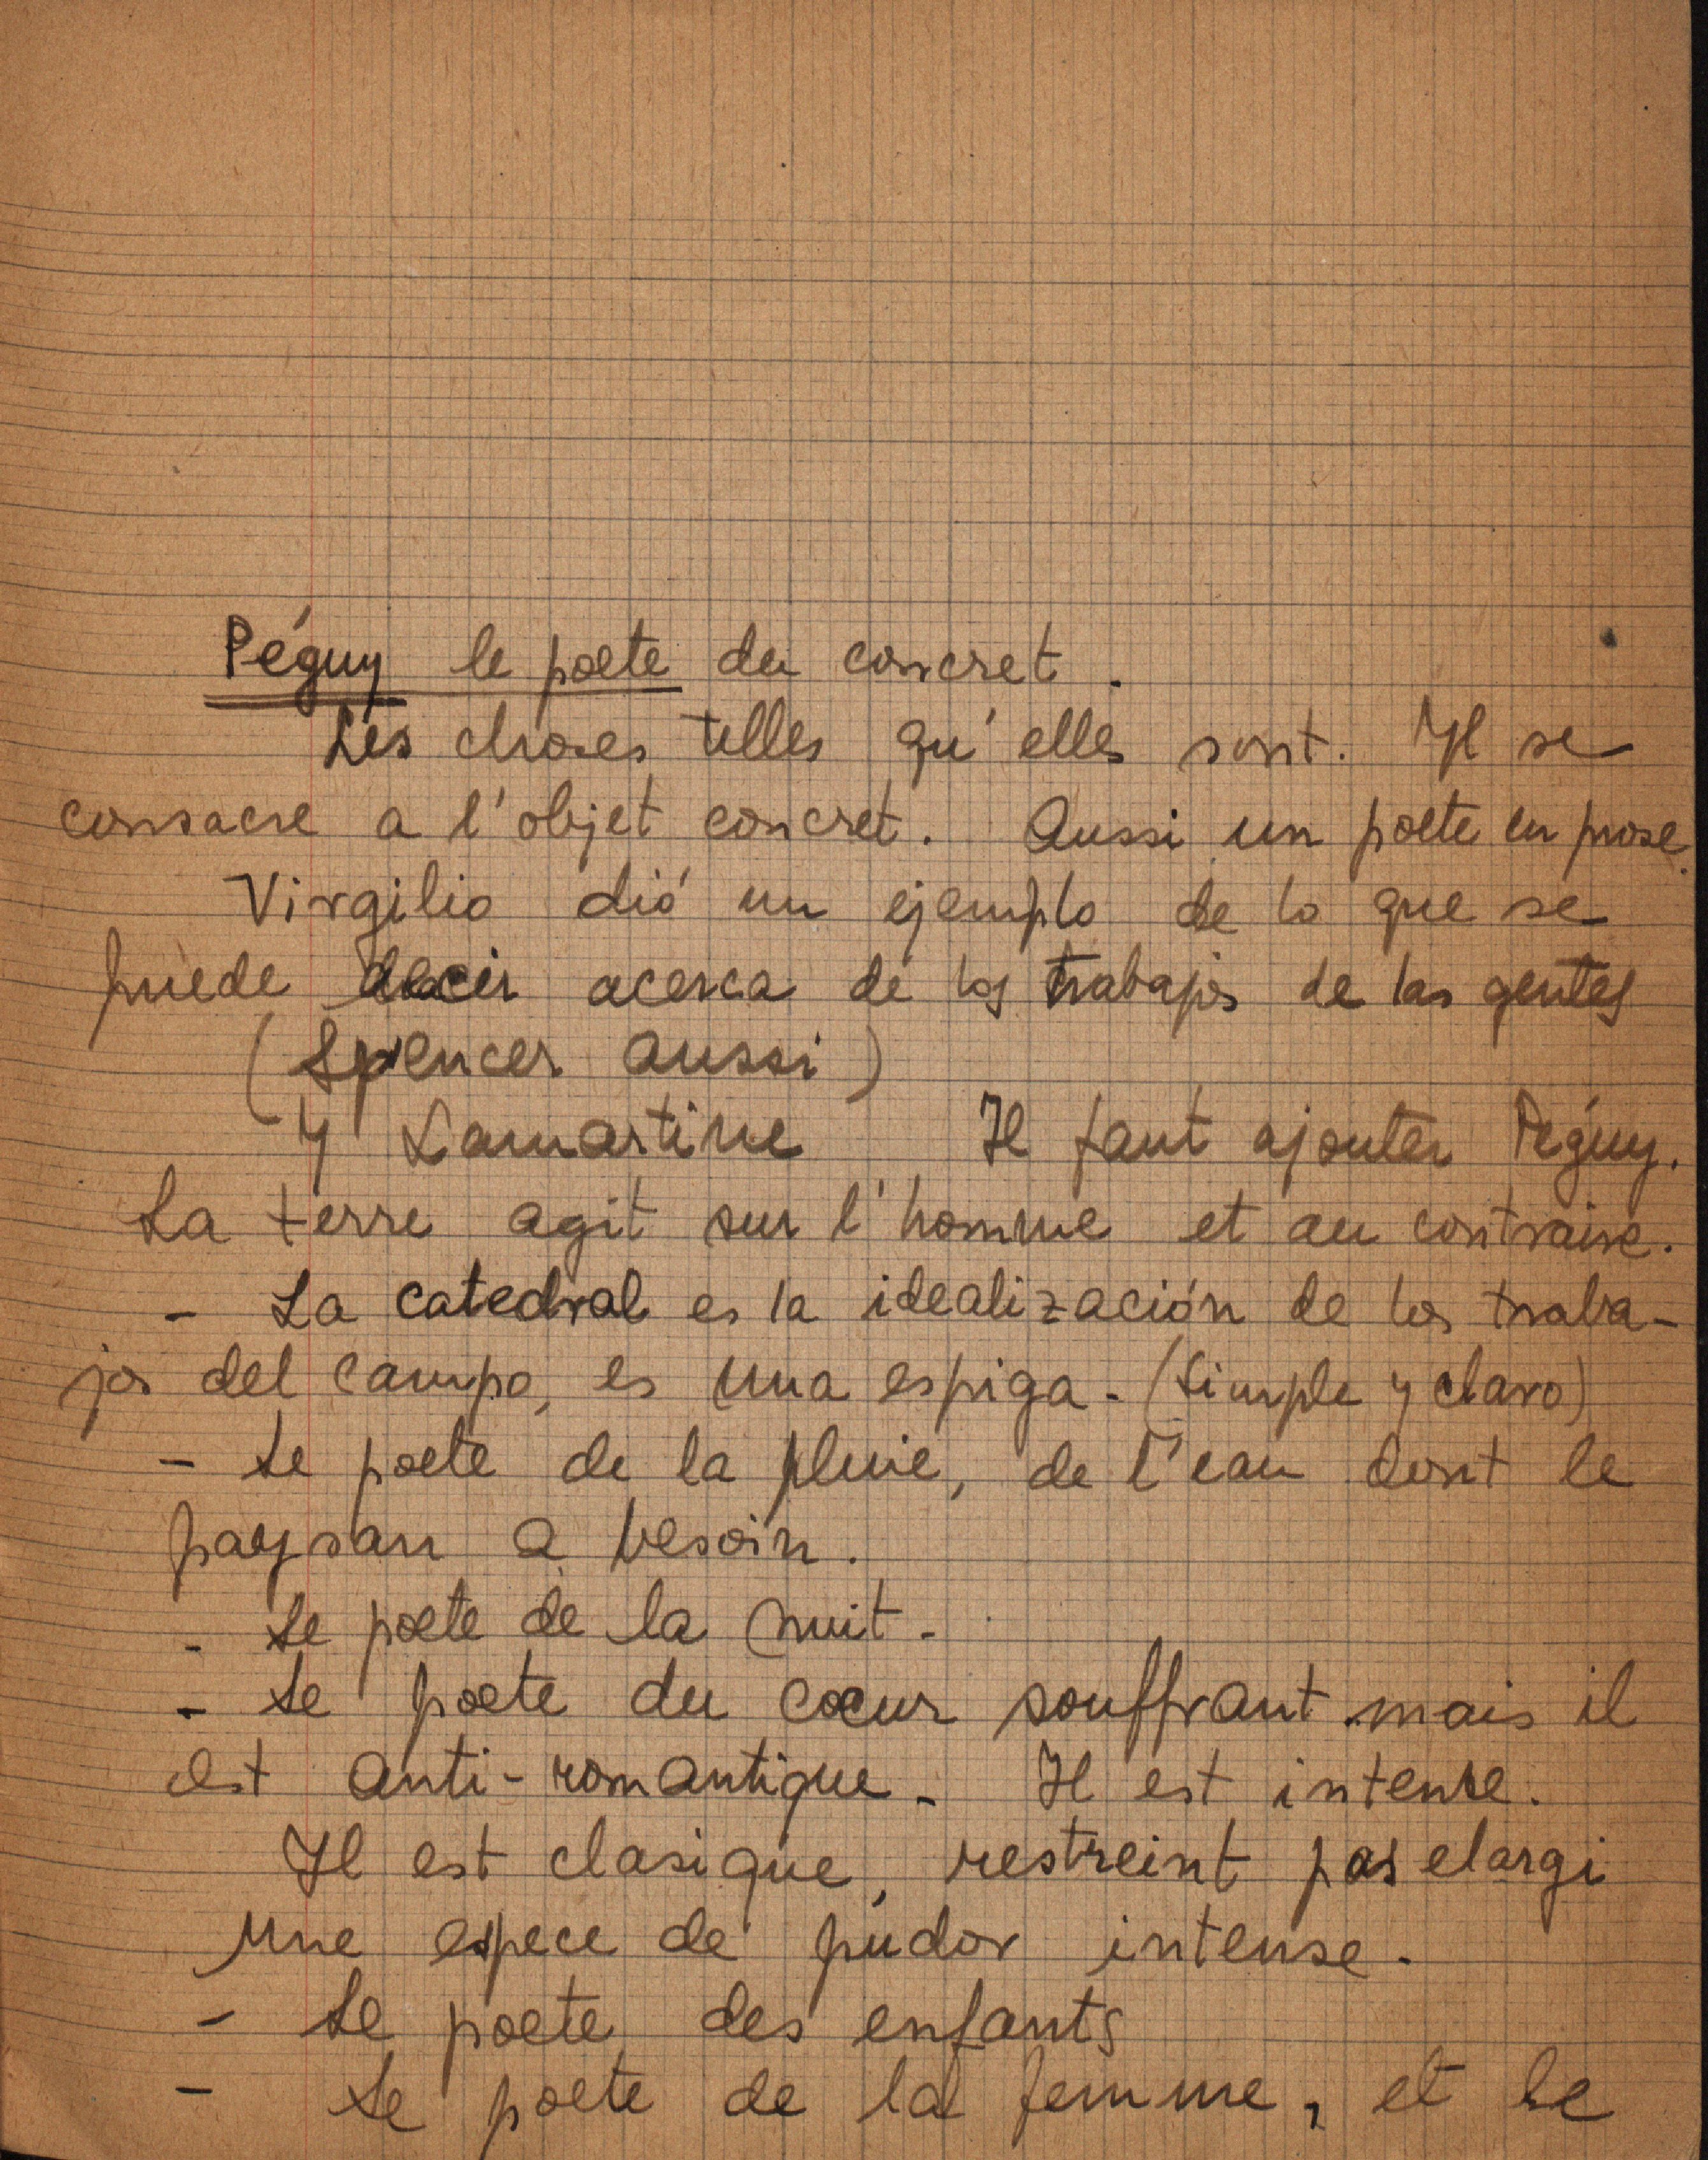 Péguy le poete du concret.
Les choses telles qu'elles sont. Il se
consacre a l'objet concret. Aussi un poete en prose.
Virgilio dió un ejemplo de lo que se
puede decir acerca de los trabajos de las gentes
(Spencer aussi)
y Lamartine Il faut ajouter Péguy.
La terre agit sur l'homme et au contraire.
- La catedral es la idealización de los traba-
jos del campo, es una espiga - (Simple y claro)
- Le poete de la pluie, de l'eau dont le
paysan a besoin.
- Le poete de la nuit -
- Le poete du coeur souffrant mais il
est anti-romantique - Il est intense.
Il est clasique, restreint pas elargi
Une espece de pudor intense -
- Le poete des enfants
- Le poete de la femme, et le